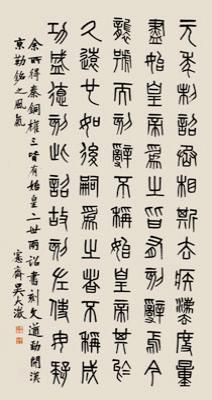 元年制詔丞相斯去疾灋度量
盡始皇帝爲之皆有刻辭焉今
襲號而刻辭不稱始皇帝其於
久遠也如後嗣爲之者不稱成
功盛德刻此詔故刻左使毋疑
余所得秦銅權三皆有始皇二世兩詔書刻文遒勁開漢
京勒銘之風氣
愙齋吳大澂